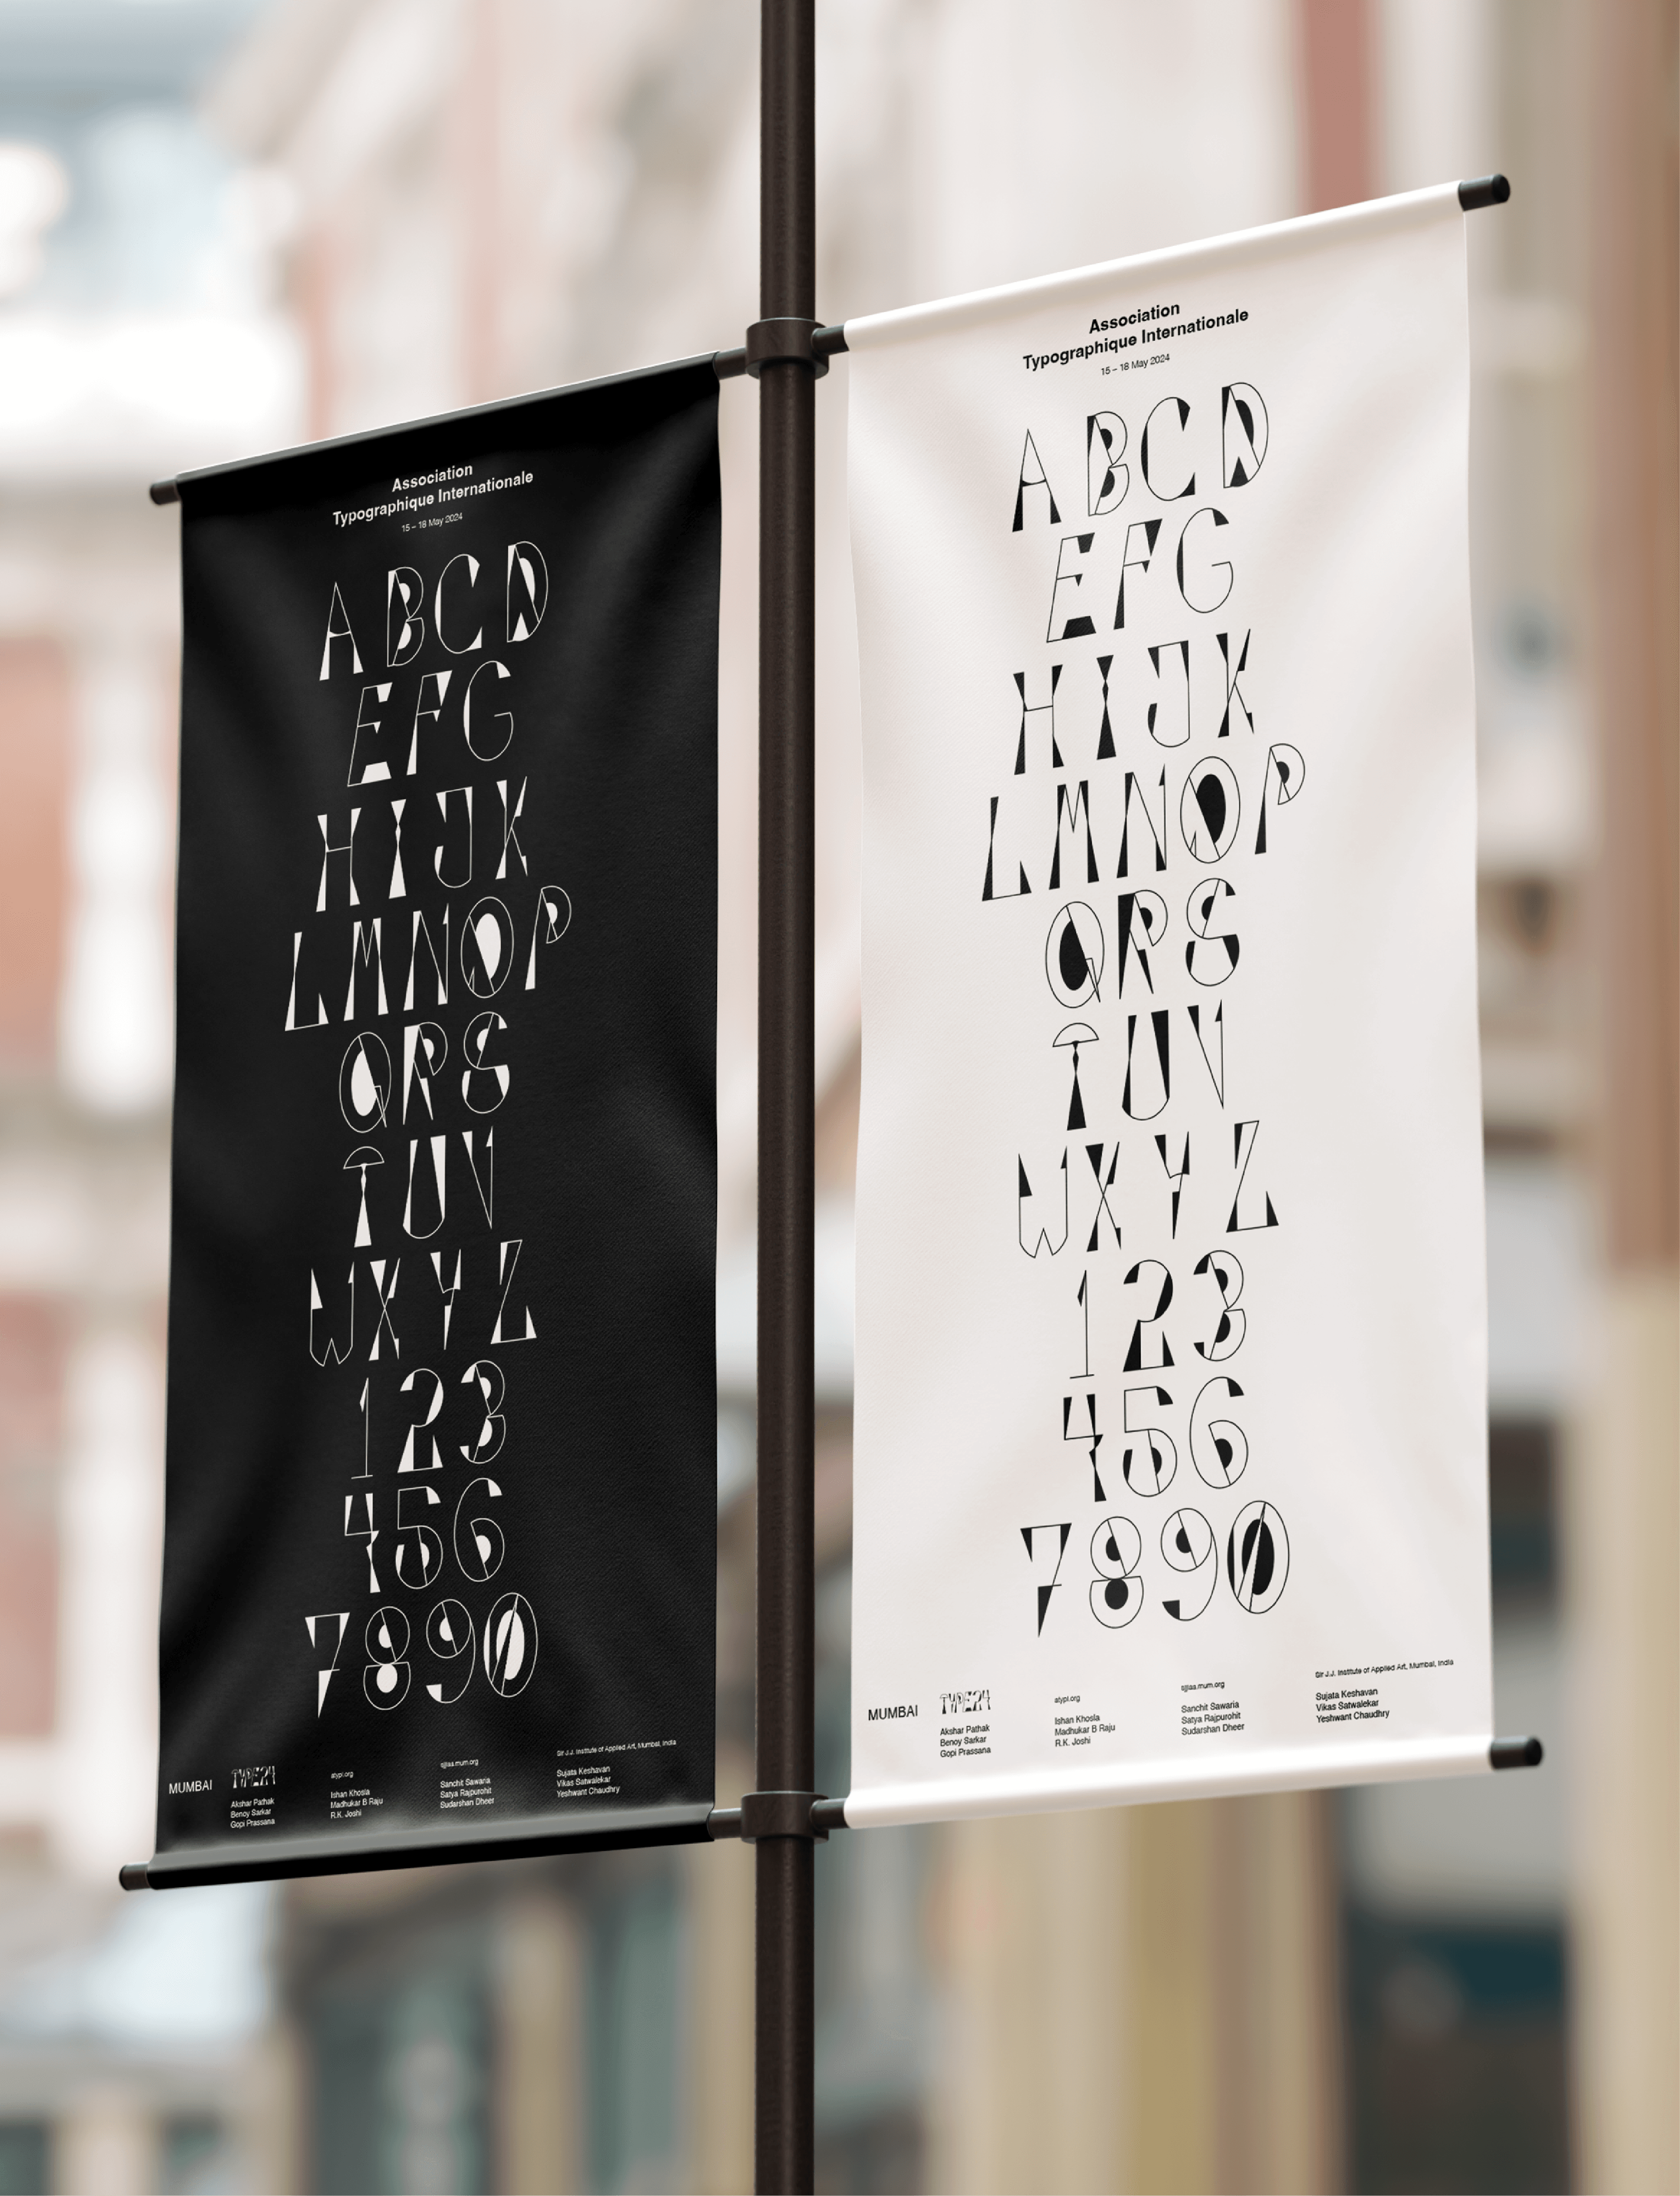 Association
Typographique Internationale
15 – 18 May 2024
A B C D
E F G
H I J K
L M N O P
Q R S
T U V
W X Y Z
1 2 3
4 5 6
7 8 9 0
MUMBAI
TYPE24
Akshar Pathak
Benoy Sarkar
Gopi Prassana
atypi.org
Ishan Khosla
Madhukar B Raju
R.K. Joshi
sjjiaa.mum.org
Sanchit Sawaria
Satya Rajpurohit
Sudarshan Dheer
Sir J.J. Institute of Applied Art, Mumbai, India
Sujata Keshavan
Vikas Satwalekar
Yeshwant Chaudhry
Association
Typographique Internationale
15 – 18 May 2024
A B C D
E F G
H I J K
L M N O P
Q R S
T U V
W X Y Z
1 2 3
4 5 6
7 8 9 0
MUMBAI
TYPE24
Akshar Pathak
Benoy Sarkar
Gopi Prassana
atypi.org
Ishan Khosla
Madhukar B Raju
R.K. Joshi
sjjiaa.mum.org
Sanchit Sawaria
Satya Rajpurohit
Sudarshan Dheer
Sir J.J. Institute of Applied Art, Mumbai, India
Sujata Keshavan
Vikas Satwalekar
Yeshwant Chaudhry